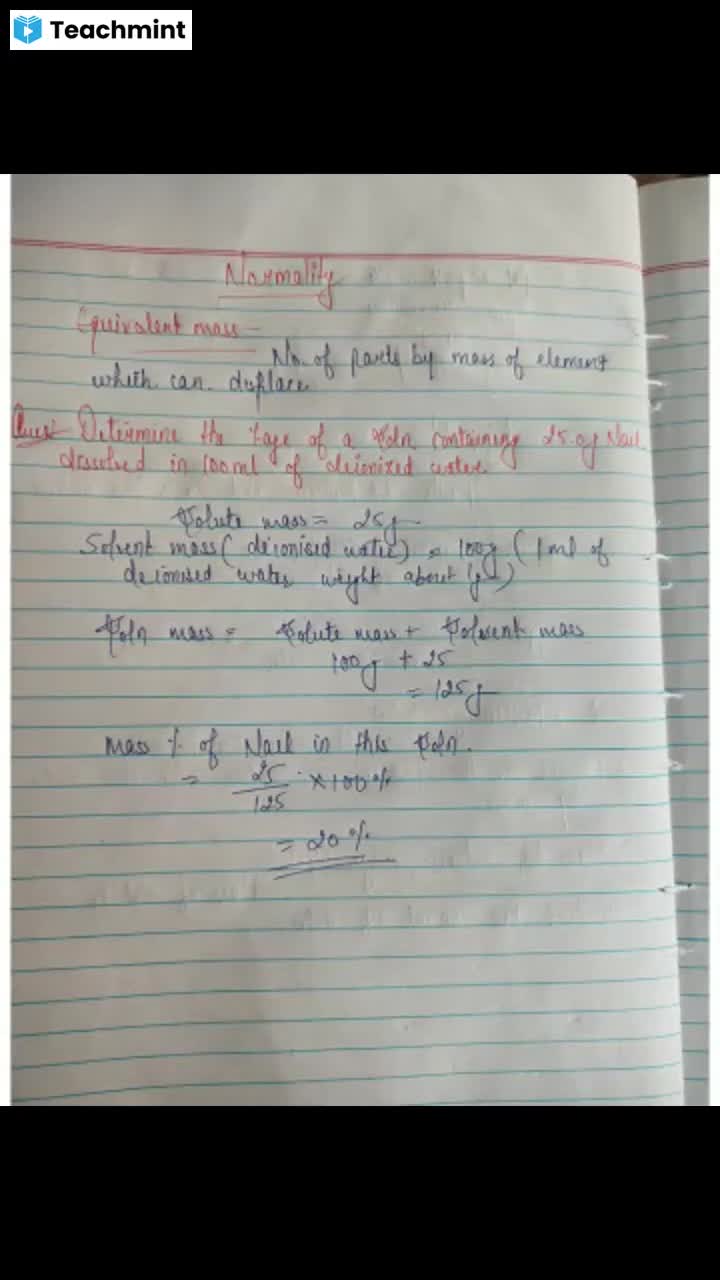 Teachmint
Normality
Equivalent mass-
No. of parts by mass of element
which can displace
Ques! Determine the %age of a soln. containing 25.0g Nacl
dissolved in 100ml of deionized water
Solute mass = 25g.
Solvent mass ( deionised water) = 100g ( 1ml of
deionised water weight about 1g)
Soln mass = Solute mass + Solvent mass
100g + 25
= 125g
Mass % of Nacl in this Soln.
= 25/125 × 100%
= 20%